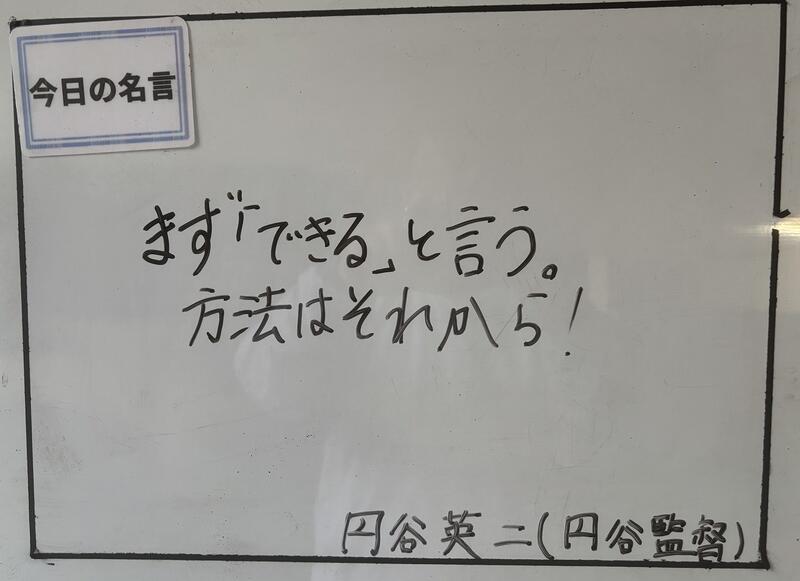 今日の名言
まず「できる」と言う。
方法はそれから!
円谷英二(円谷監督)